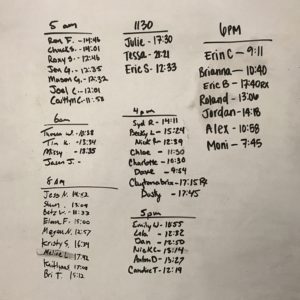 5 am
Ron F. - 14:46
Chuck S. - 14:01
Roxy S. - 12:46
Jen G. - 12:35
Mason G. - 12:32
Joel C - 12:01
Caitlyn C - 11:58
6am
Thomas W. - 10:38
Tim K. - 13:34
Missy - 13:35
Jason J. -
8AM
Jess N. 14:52
Shan 13:09
Betz V. - 11:33
Eimon F. 15:00
Megan N. 12:57
Kristy S. 16:34
17:42
17:00
Bri T. 15:12
1130
Julie - 17:30
Tessa - 21:21
Eric S - 12:33
4pm
Syd R - 14:11
Becky L - 15:24
Nick P - 12:39
Chloe - 11:30
Charlotte - 10:30
Dave - 9:64
17:15 RX
Dusty - 17:45
5pm
Emily N - 11:55
Lola - 12:32
Dan - 12:50
Nick L - 13:14
Anton D - 13:27
Candice T - 12:19
6PM
Erin C - 9:11
Brianna - 10:40
Eric B - 17:40 RX
Roland - 13:06
Jordan - 14:18
Alex - 10:58
Moni - 7:45